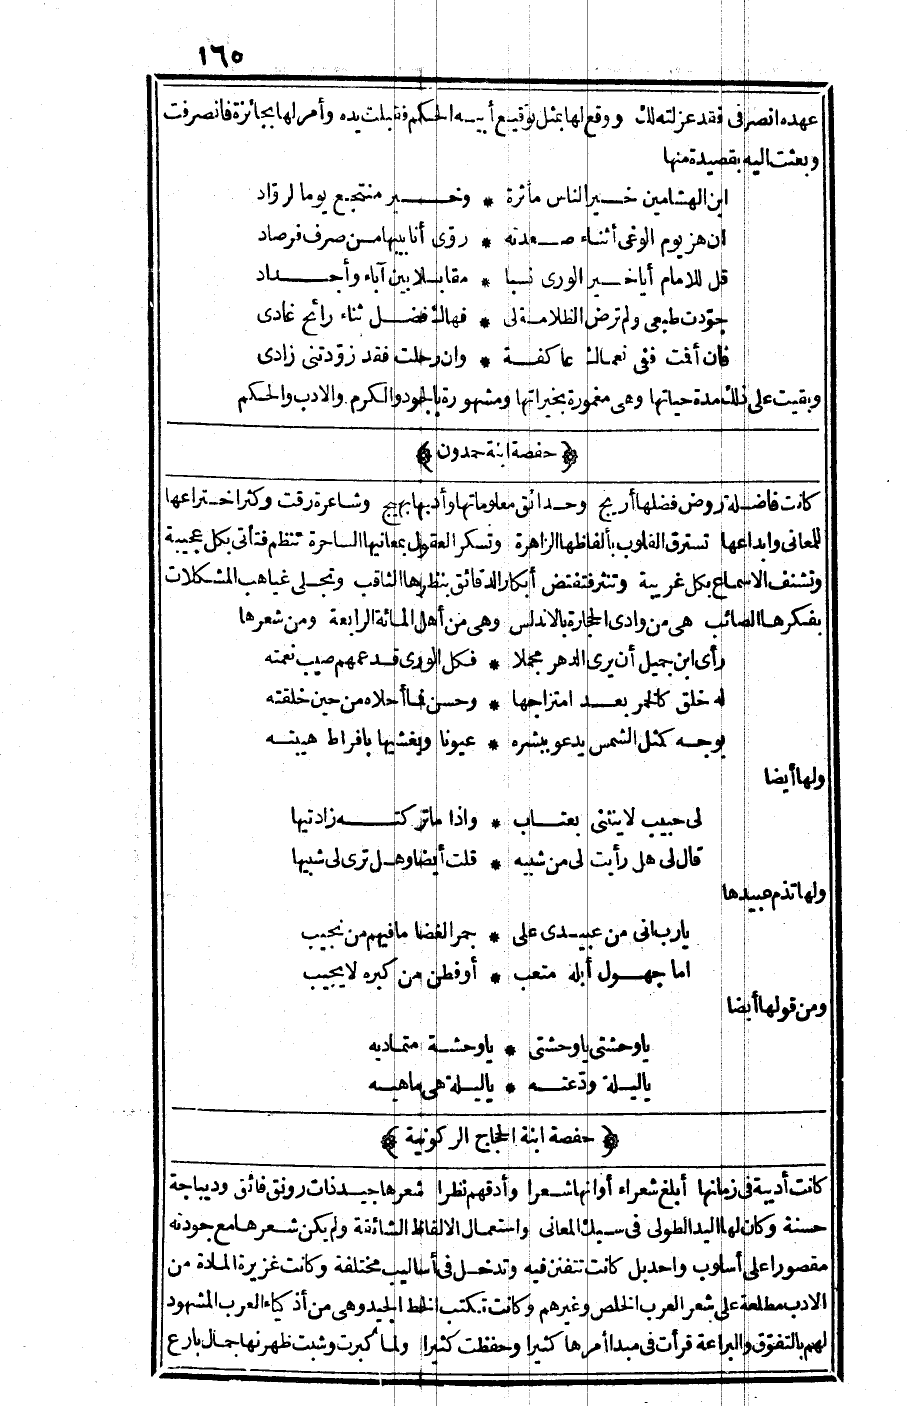 ١٦٥
عهده انصر فى فقد عزلته لك ووقع لها بمثل توقيع أبيه الحكم فقبلت يده وأمر لها بجائزة فانصرفت
وبعثت اليه بقصيدة منها
ابن الهشامين خير الناس مأثرة * وخير منتجع يوما لرواد
ان هز يوم الوغى أثناء صعدته * روّى أنابيبها من صرف فرصاد
قل للامام أيا خير الورى نسبا * مقابلا بين آباء وأجداد
جوّدت طبعى ولم ترض الظلامة لى * فهاك فضل ثناء رائح غادى
فان أقمت ففى نعماك عاكفة * وان رحلت فقد زوّدتنى زادى
وبقيت على ذلك مدة حياتها وهى مغمورة بخيراتها ومشهورة بالجود والكرم والادب والحكم
﴿حفصة ابنة حمدون﴾
كانت فاضلة روض فضلها أريج وحدائق معلوماتها وأدبها بهيج وشاعرة رقت وكثر اختراعها
للمعانى وابداعها تسترق القلوب بألفاظها الزاهرة وتسكر العقول بمعانيها الساحرة تنظم فتأتى بكل عجيبة
وتشنف الاسماع بكل غريبة وتنثر فتفتض أبكار الدقائق بنظرها الثاقب وتجلى غياهب المشكلات
بفكرها الصائب هى من وادى الحجارة بالاندلس وهى من أهل المائة الرابعة ومن شعرها
رأى ابن جميل أن يرى الدهر مجملا * فكل الورى قد عمهم صيب نعمته
له خلق كالخمر بعد امتزاجها * وحسن فما أحلاه من حين خلقته
بوجه كمثل الشمس يدعو ببشره * عيونا ويغشيها بافراط هيبته
ولها أيضا
لى حبيب لا ينثنى بعتاب * واذا ما تركته زادتيها
قال لى هل رأيت لى من شبيه * قلت أيضا وهل ترى لى شبيها
ولها تذم عبيدها
يارب انى من عبيدى على * جمر الغضا ما فيهم من نجيب
اما جهول أبله متعب * أو فطن من كبره لا يجيب
ومن قولها أيضا
ياوحشتى ياوحشتى * ياوحشة متماديه
ياليلة ودّعته * ياليلة هى ماهيه
﴿حفصة ابنة الحجاج الركونية﴾
كانت أديبة فى زمانها أبلغ شعراء أوانها شعرا وأدقهم نظرا شعرها جيد ذات رونق فائق وديباجة
حسنة وكان لها اليد الطولى فى سبك المعانى واستعمال الالفاظ الشائقة ولم يكن شعرها مع جودته
مقصورا على أسلوب واحد بل كانت تتفنن فيه وتدخل فى أساليب مختلفة وكانت غزيرة المادة من
الادب مطلعة على شعر العرب الخلص وغيرهم وكانت تكتب الخط الجيد وهى من أذكياء العرب المشهود
لهم بالتفوّق والبراعة قرأت فى مبدا أمرها كثيرا وحفظت كثيرا ولما كبرت وشبت ظهر نها جمال بارع